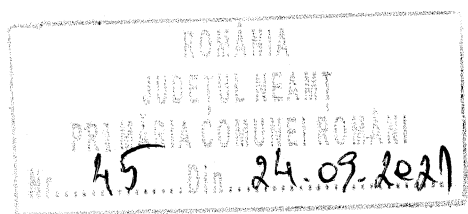 ROMÂNIA
JUDEȚUL NEAMȚ
PRIMĂRIA COMUNEI ROMÂNI
Nr. 45 Din 24.09.2021